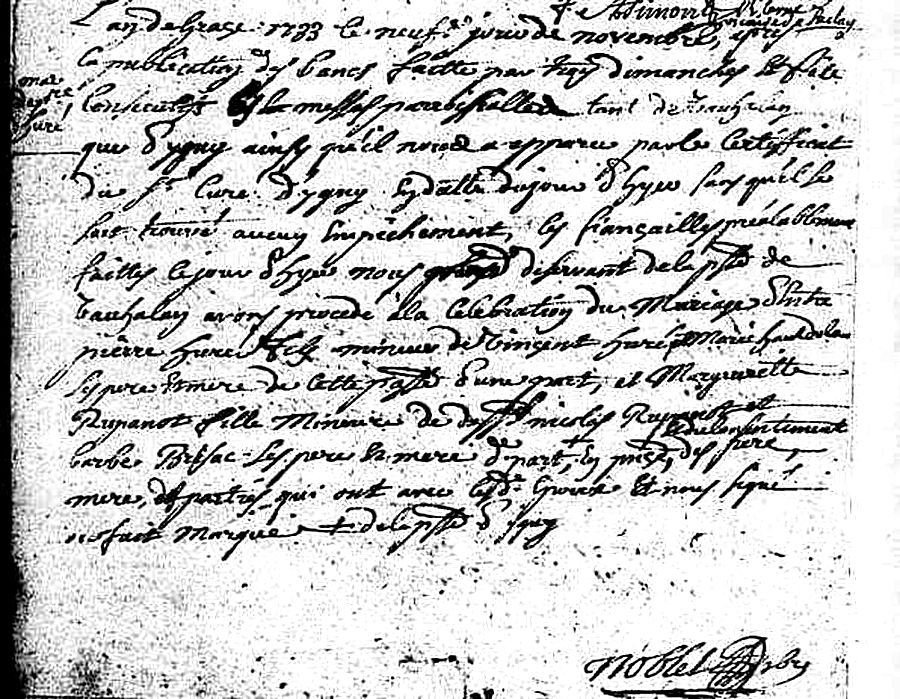 L'an de Grace 1733 le neufe jour de novembre, après
la publication des bancs faitte par trois dimanches et fête
mar
pre
huré
Consecutifs es messes paroissialles tant de Vauhalan
que d'ygny ainsy qu'il nous a apparu par le Certifficat
du Sr Curé d'ygny en datte du jour d'hyer sans qu'il se
soit trouvé aucun Empêchement, les fiançailles préalablement
faittes le jour d'hyer nous desservant de la psse de
Vauhalan avons procedé à la Celebration du Mariage d'Entre
pierre huré fils mineur de Vincent huré et Marie
ses pere et mere de cette psse d'une part, et Margueritte
Rupanot fille Mineure de deff nicolas Rupanot et
du consentiment
barbe Brisac ses pere et mere de part, en prsce des pere,
mere, et parties qui ont avec lesd. Epoux et nous signé
ou fait marque + de la psse d'ygny
noblet pbre